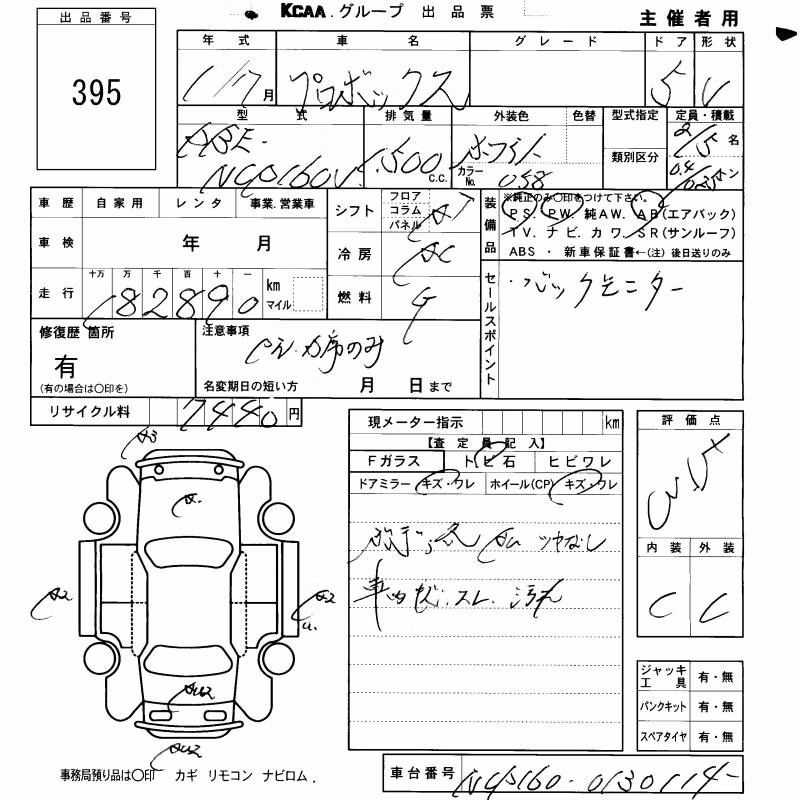 KCAA.グループ 出品票
主催者用
出品番号
395
年式 車名 グレード ドア 形状
1/7月 プロボックス 5 V
型式 排気量 外装色 色替 型式指定 定員・積載
類別区分
NCP160V 1,500 C.C. ホワイト カラーNo. 058 2/5名
0.4/0.25トン
車歴 自家用 レンタ 事業.営業車
シフト フロア コラム パネル AT
装備品 ※純正のみ〇印をつけて下さい。
PS. PW. 純AW. AB(エアバック)
TV. ナビ. カワ. SR(サンルーフ)
ABS ・ 新車保証書←(注) 後日送りのみ
車検 年 月
冷房 AC
走行 十万 万 千 百 十 一 km マイル
182890
燃料 G
セールスポイント
・バックモニター
修復歴 箇所
有
(有の場合は〇印を)
注意事項
名変期日の短い方 月 日まで
リサイクル料 7440円
現メーター指示 km
【査定員記入】
Fガラス トビ石 ヒビワレ
ドアミラー キズ・ワレ ホイール(CP) キズ・ワレ
ツヤなし
車内 スレ. 汚れ
評価点
内装 外装
C C
A3
A2
A2
ジャッキ工具 有・無
パンクキット 有・無
スペアタイヤ 有・無
事務局預り品は〇印 カギ リモコン ナビロム.
車台番号 NCP160-0130114